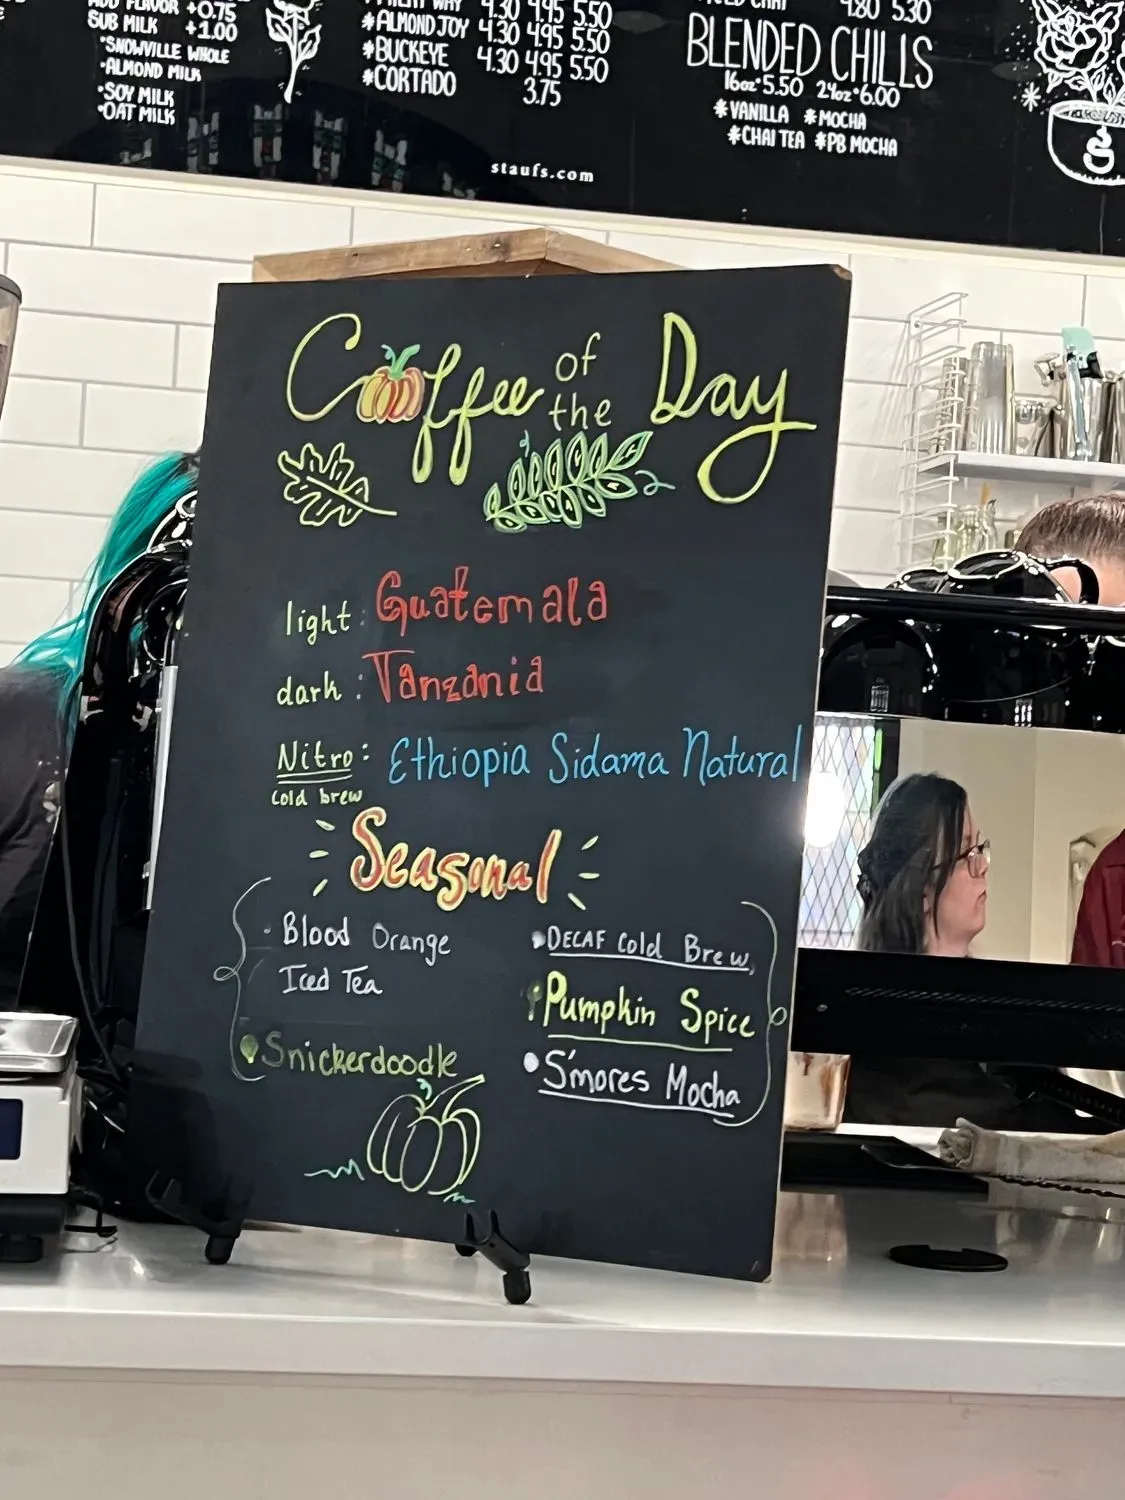 ADD FLAVOR +0.75
SUB MILK +1.00
•SNOWVILLE WHOLE
•ALMOND MILK
•SOY MILK
•OAT MILK
WAY 4.30 4.95 5.50
*ALMOND JOY 4.30 4.95 5.50
*BUCKEYE 4.30 4.95 5.50
*CORTADO 3.75
CHAI 4.80 5.30
BLENDED CHILLS
16oz•5.50 24oz•6.00
*VANILLA *MOCHA
*CHAI TEA *PB MOCHA
staufs.com
Coffee of the Day
light: Guatemala
dark: Tanzania
Nitro: Ethiopia Sidama Natural
Cold brew
Seasonal
• Blood Orange
Iced Tea
• Snickerdoodle
• DECAF Cold Brew
Pumpkin Spice
• S'mores Mocha